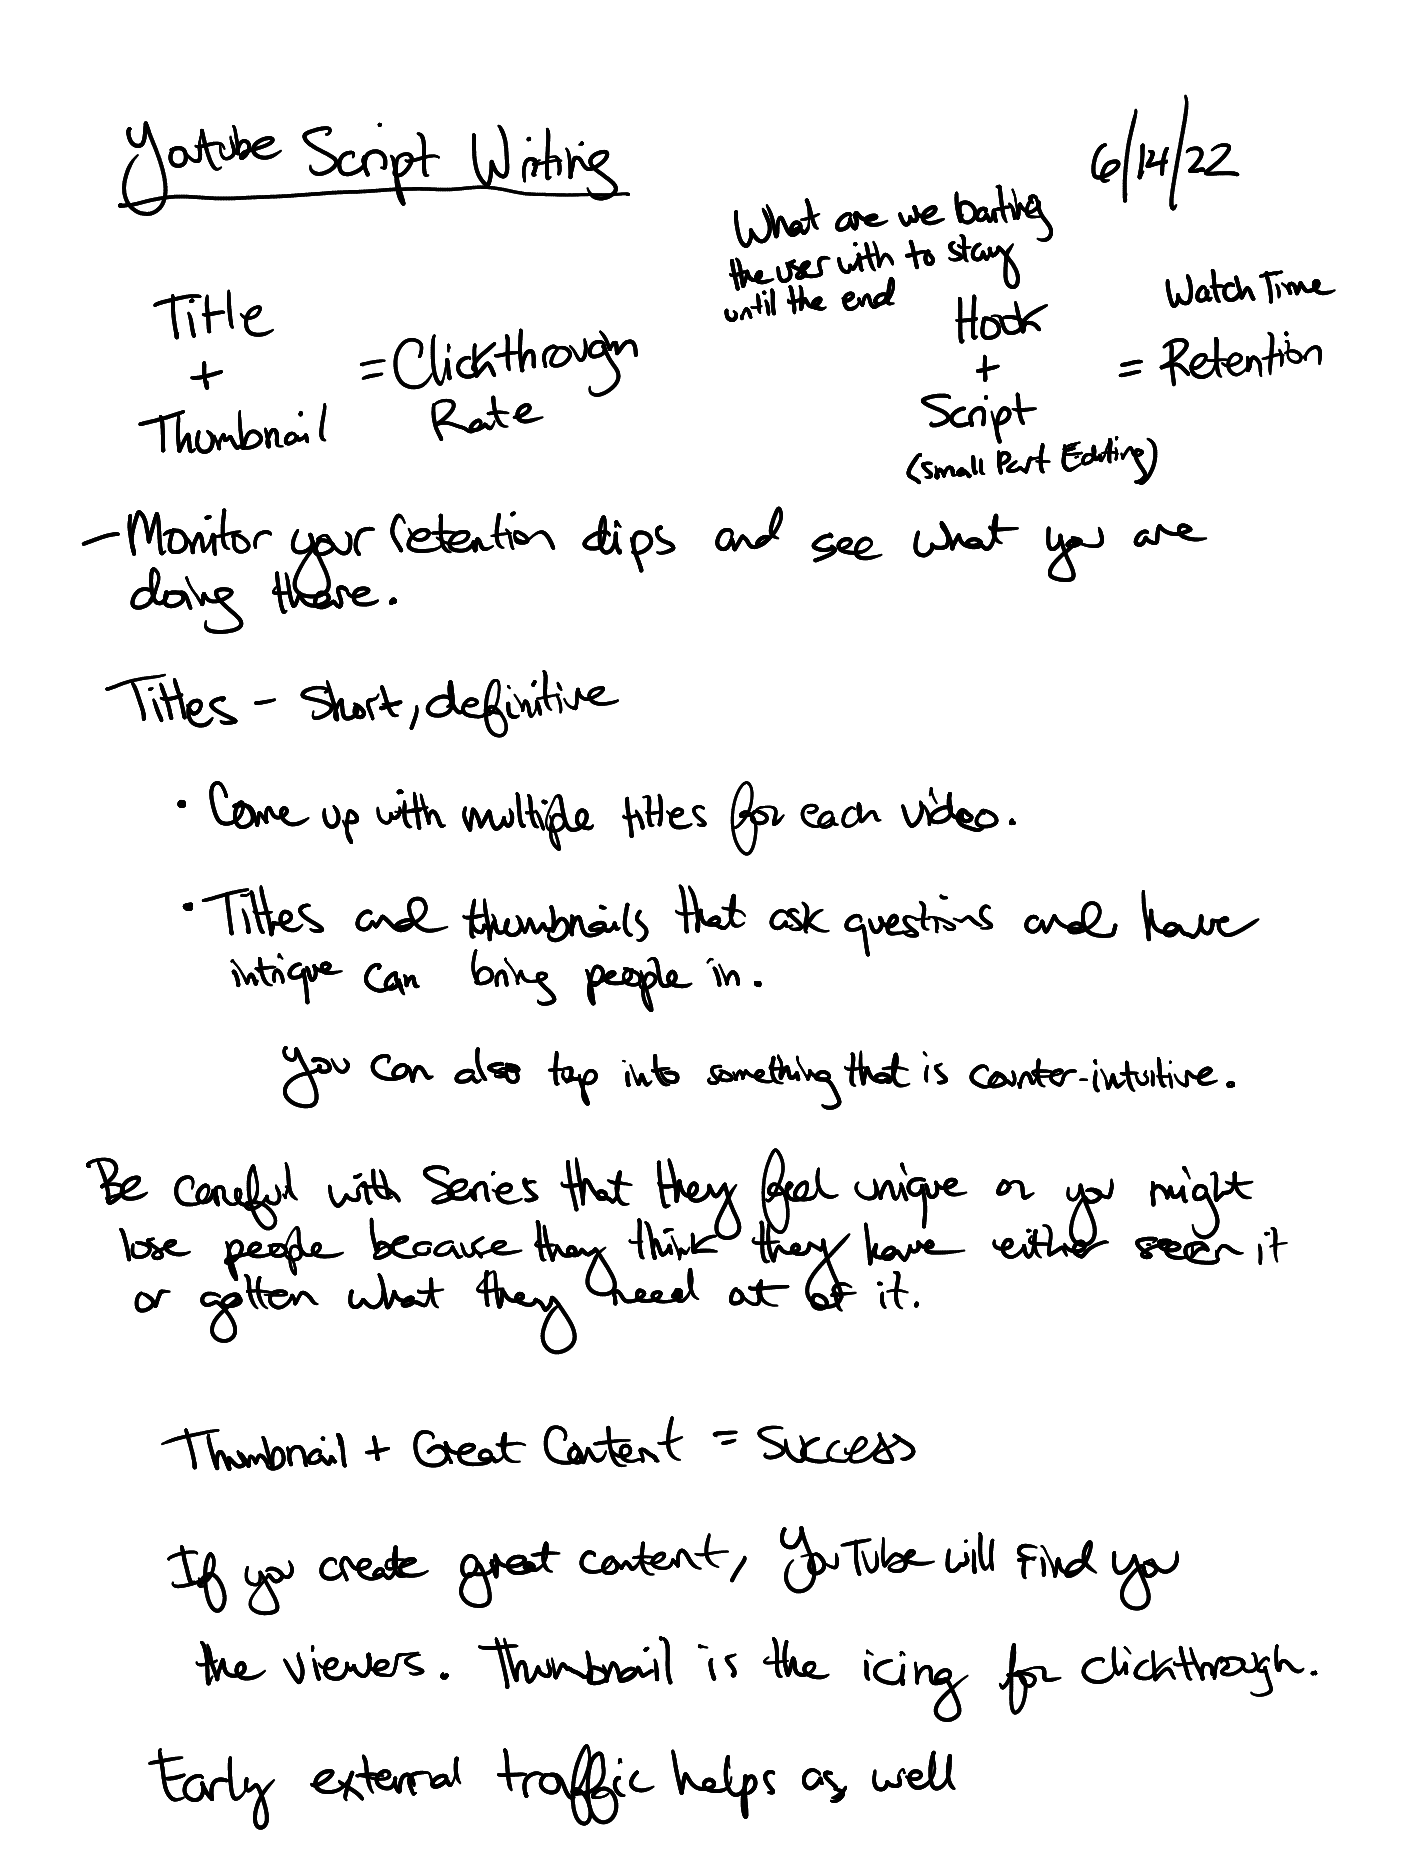 Youtube Script Writing
6/14/22
What are we baiting
the user with to stay
until the end
Title
+
Thumbnail
= Clickthrough
Rate
Hook
+
Script
(Small Part Editing)
Watch Time
= Retention
- Monitor your retention dips and see what you are
doing there.
Titles - Short, definitive
• Come up with multiple titles for each video.
• Titles and thumbnails that ask questions and have
intrique can bring people in.
You can also tap into something that is counter-intuitive.
Be careful with Series that they feel unique or you might
lose people because they think they have either seen it
or gotten what they need at of it.
Thumbnail + Great Content = Success
If you create great content, YouTube will find you
the viewers. Thumbnail is the icing for clickthrough.
Early external traffic helps as well